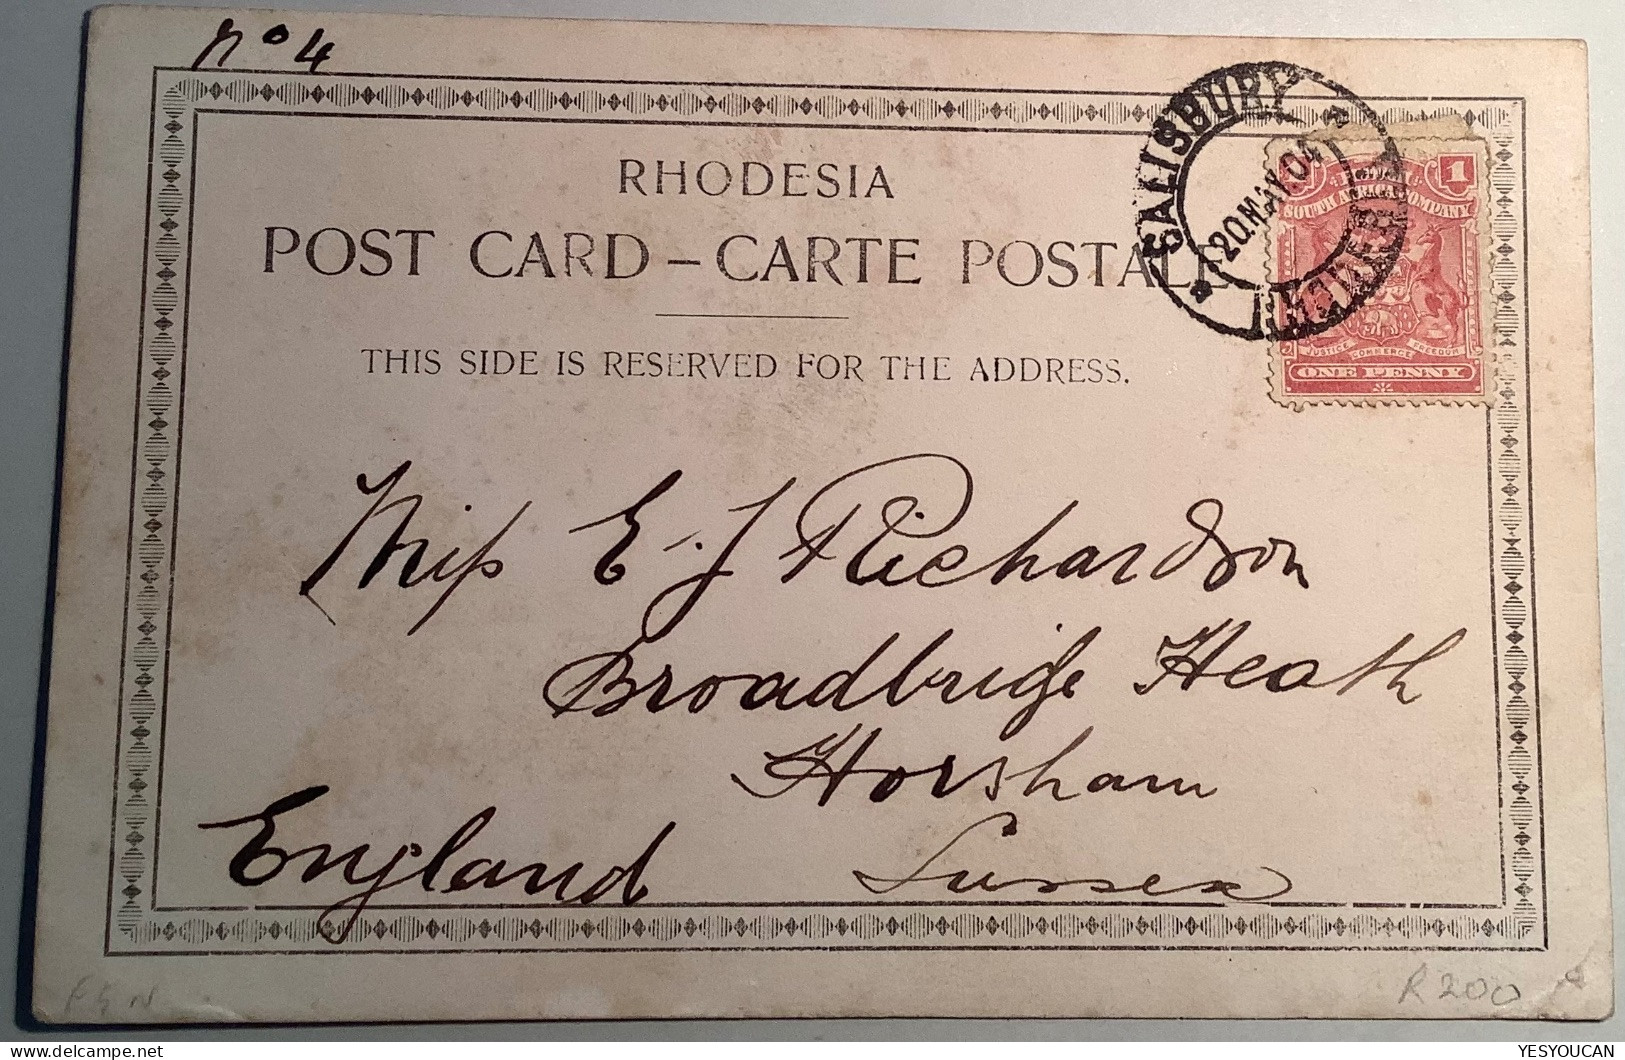 No 4
RHODESIA
POST CARD – CARTE POSTALE
THIS SIDE IS RESERVED FOR THE ADDRESS.
SALISBURY
20 MAY 04
RHODESIA
1
SOUTH AFRICA COMPANY
JUSTICE COMMERCE FREEDOM
ONE PENNY
Miss E. J Richardson
Broadbridge Heath
Horsham
Sussex
England
R200
YESYOUCAN